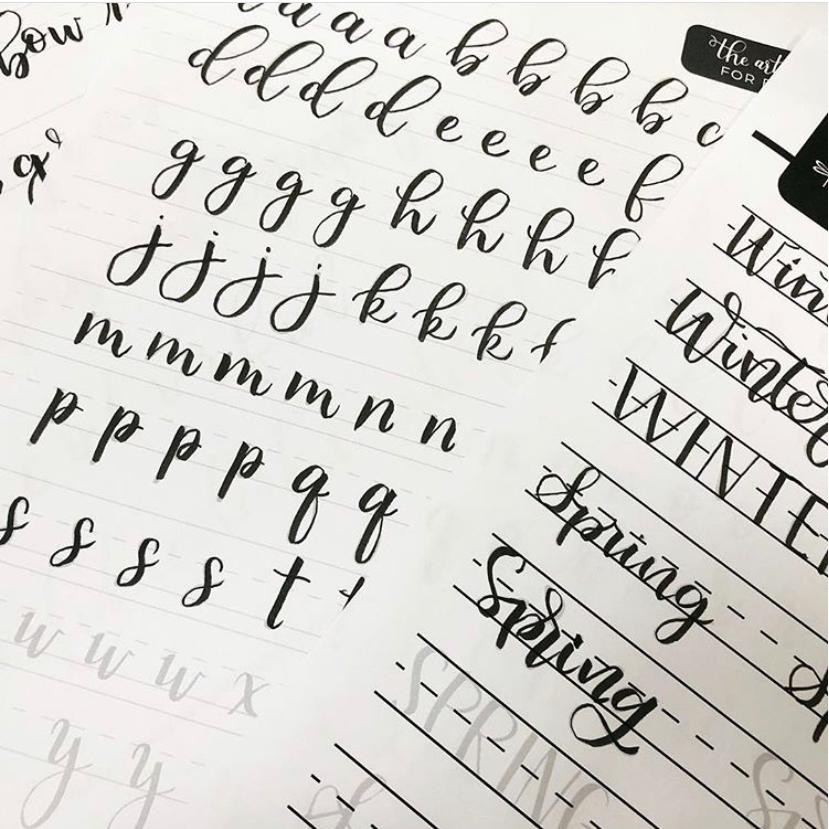 bow
a a a a b b b b c
d d d d e e e e f
g g g g h h h h
j j j j k k k
m m m m n n
p p p p q q
s s s s t
w w w x
y y
the art
FOR
Win
Winter
WINTE
Spring
Spring
SPRING